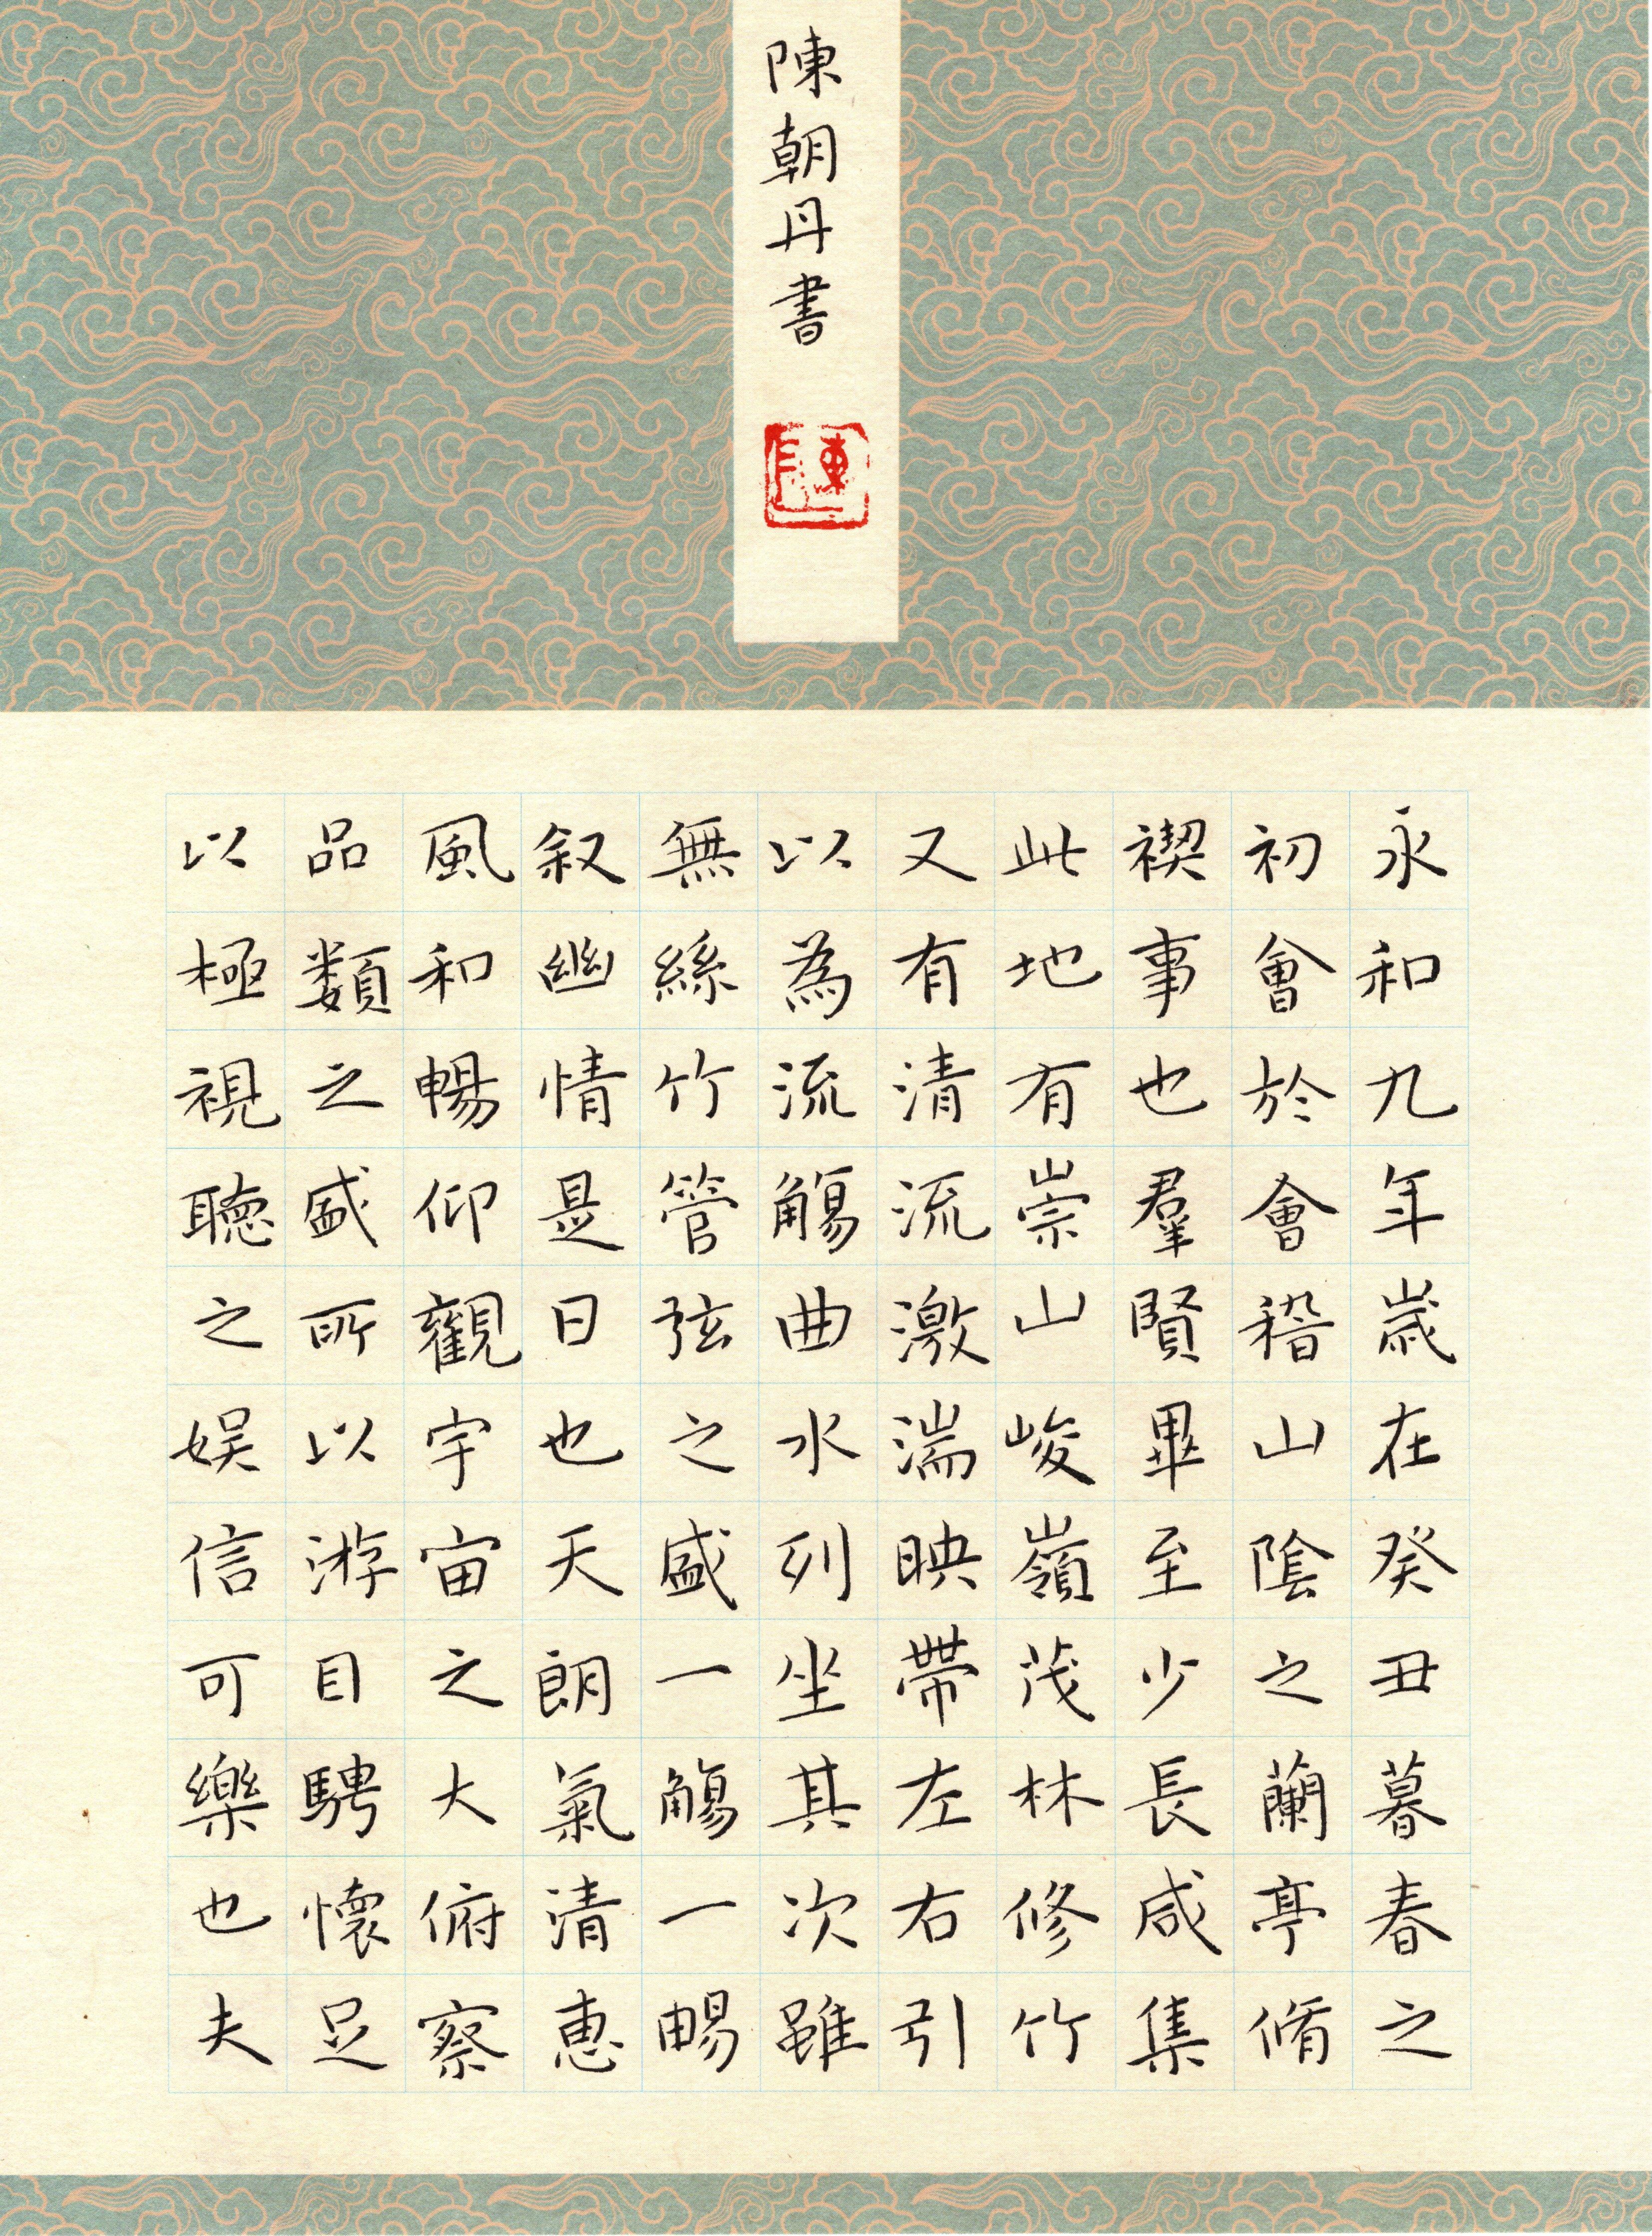 陳朝丹書
陳
永和九年歲在癸丑暮春之
初會於會稽山陰之蘭亭脩
禊事也羣賢畢至少長咸集
此地有崇山峻嶺茂林修竹
又有清流激湍映帶左右引
以為流觴曲水列坐其次雖
無絲竹管弦之盛一觴一暢
叙幽情是日也天朗氣清惠
風和暢仰觀宇宙之大俯察
品類之盛所以游目騁懷足
以極視聽之娛信可樂也夫